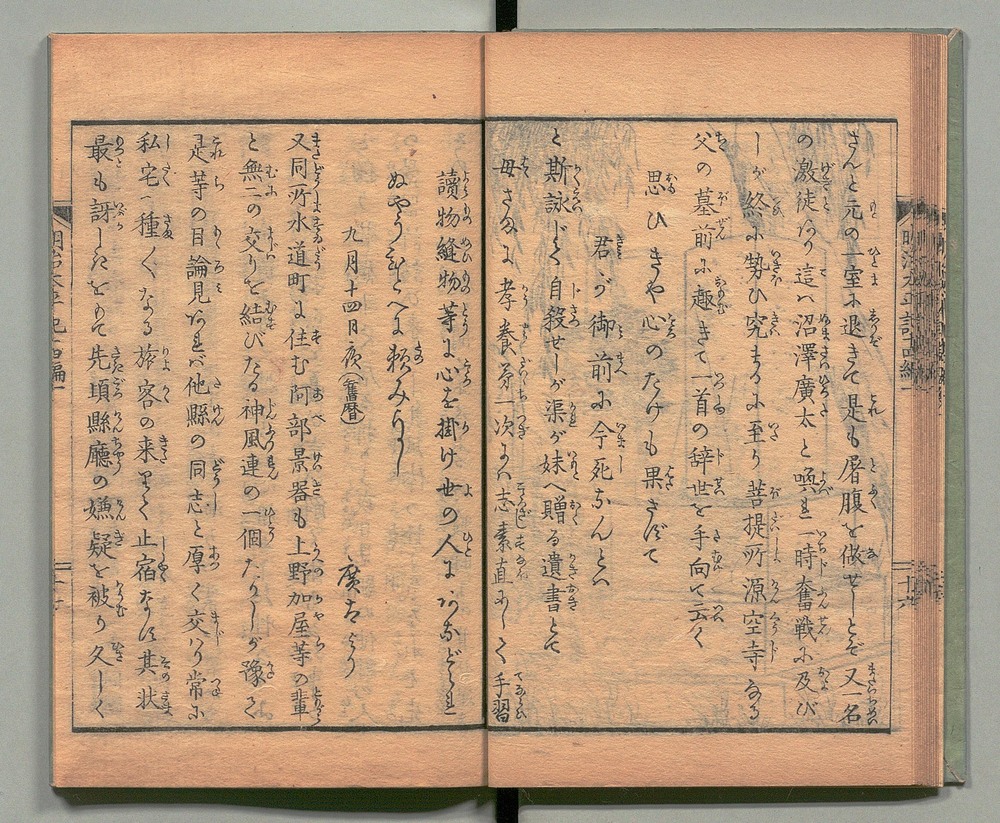 さんと元の一室に退きて是も屠腹を做せしとぞ又一名
の激徒あり這ハ沼澤廣太と喚れ一時奮戦に及び
しが終に勢ひ究まるに至り菩提所源空寺なる
父の墓前に趣きて一首の辞世を手向て云く
思ひきや心のたけも果さずて
君が御前に今死なんとハ
と斯詠じて自殺せしが渠が妹へ贈る遺書とて
母さまに孝養第一次にハ志素直にして手習
讀物縫物等に心を掛け世の人にあなどられ
ぬやう
頼み
九月十四日夜(舊暦) 廣太より
又同所水道町に住む阿部景器も上野加屋等の輩
と無二の交りを結びたる神風連の一個なりしが豫て
是等の目論見あれバ他縣の同志と厚く交ハり常に
私宅へ種々なる旅客の来りて止宿なす其状
最も訝しきをもて先頃縣廳の嫌疑を被り久しく
明治太平記十四編
十六